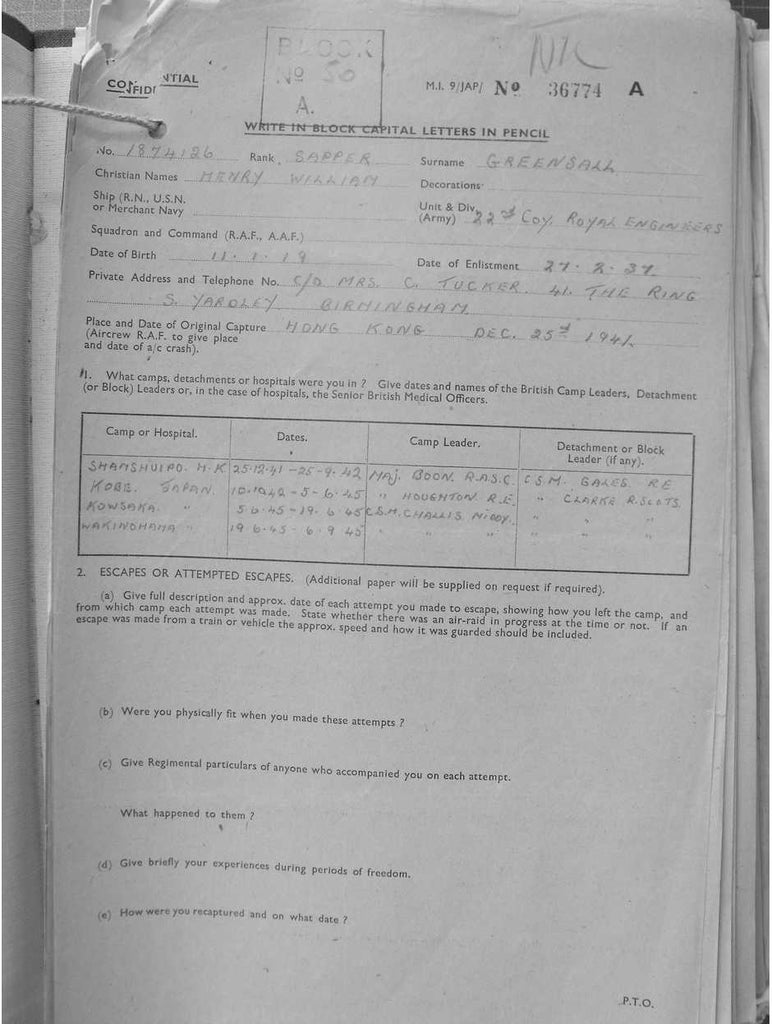 BLOCK
No 50
A.
CONFIDENTIAL
M.I. 9/JAP/ No 36774 A
WRITE IN BLOCK CAPITAL LETTERS IN PENCIL
No. 1874126 Rank SAPPER Surname GREENSALL
Christian Names HENRY WILLIAM Decorations
Ship (R.N., U.S.N.
or Merchant Navy
Unit & Div.
(Army) 22nd Coy. ROYAL ENGINEERS
Squadron and Command (R.A.F., A.A.F.)
Date of Birth 11.1.19 Date of Enlistment 27.2.37
Private Address and Telephone No. C/O MRS. C. TUCKER. 41. THE RING
S. YARDLEY BIRMINGHAM
Place and Date of Original Capture HONG KONG DEC. 25th 1941
(Aircrew R.A.F. to give place
and date of a/c crash).
1. What camps, detachments or hospitals were you in ? Give dates and names of the British Camp Leaders, Detachment
(or Block) Leaders or, in the case of hospitals, the Senior British Medical Officers.
Camp or Hospital. Dates. Camp Leader. Detachment or Block
Leader (if any).
SHAMSHUIPO. H.K 25.12.41-25-9.42 MAJ. BOON. R.A.S.C. C.S.M. GALES. R.E
KOBE. JAPAN. 10.10.42-5-6.45 " HOUGHTON R.E. " CLARKE R.SCOTS.
KOWSAKA. " 5.6.45-19.6.45 C.S.M. CHALLIS MIDDX. " "
WAKINOHAMA " 19.6.45-6.9.45 " " " "
2. ESCAPES OR ATTEMPTED ESCAPES. (Additional paper will be supplied on request if required).
(a) Give full description and approx. date of each attempt you made to escape, showing how you left the camp, and
from which camp each attempt was made. State whether there was an air-raid in progress at the time or not. If an
escape was made from a train or vehicle the approx. speed and how it was guarded should be included.
(b) Were you physically fit when you made these attempts ?
(c) Give Regimental particulars of anyone who accompanied you on each attempt.
What happened to them ?
(d) Give briefly your experiences during periods of freedom.
(e) How were you recaptured and on what date ?
P.T.O.